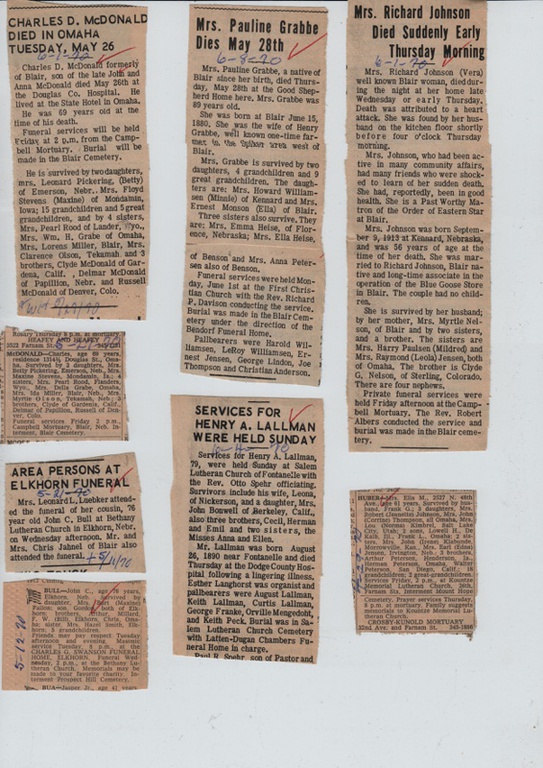 CHARLES D. McDONALD
DIED IN OMAHA
TUESDAY, MAY 26
6-1-70
Charles D. McDonald formerly
of Blair, son of the late John and
Anna McDonald died May 26th at
the Douglas Co. Hospital. He
lived at the State Hotel in Omaha.
He was 69 years old at the
time of his death.
Funeral services will be held
Friday at 2 p.m. from the Camp-
bell Mortuary. Burial will be
made in the Blair Cemetery.
He is survived by two daughters,
mrs. Leonard Pickering, (Betty)
of Emerson, Nebr. Mrs. Floyd
Stevens (Maxine) of Mondamin,
Iowa; 15 grandchildren and 5 great
grandchildren, and by 4 sisters,
Mrs. Pearl Rood of Lander, Wyo.,
Mrs. Wm, H, Grabe of Omaha,
Mrs. Lorens Miller, Blair, Mrs.
Clarence Olson, Tekamah and 3
brothers, Clyde McDonald of Gar-
dena, Calif., Delmar McDonald
of Papillion, Nebr. and Russell
McDonald of Denver, Colo.
Rosary Thursday 8 p.m. at mortuary
HEAFEY AND HEAFEY
3522 Farnam St.
McDONALD—Charles, age 69 years,
residence 1314½ Douglas St., Oma-
ha. Survived by 2 daughters, Mrs.
Betty Pickering, Emerson, Neb., Mrs.
Maxine Stevens, Mondamin, Ia.; 4
sisters, Mrs. Pearl Rood, Flanders,
Wyo., Mrs. Della Grabe, Omaha,
Mrs. Ida Miller, Blair, Neb., Mrs.
Myrtle Olson, Tekamah, Neb.; 3
brothers, Clyde of Gardena, Calif.,
Delmar of Papillion, Russell of Den-
ver, Colo.
Funeral services Friday 2 p.m.,
Campbell Mortuary, Blair, Neb. In-
terment, Blair Cemetery.
AREA PERSONS AT
ELKHORN FUNERAL
5-21-70
Mrs. Leonard L. Loebker attend-
ed the funeral of her cousin, 76
year old John C. Bull at Bethany
Lutheran Church in Elkhorn, Nebr.
on Wednesday afternoon. Mr. and
Mrs. Chris Jahnel of Blair also
attended the funeral. + 5/11/70
BULL—John C., age 76 years,
Elkhorn, Neb. Survived by
daughter, Mrs.
Fallon; son
brothers, Arthur,
F. W. (Bill), Elkhorn, Chris, Oma-
ha; sister, Mrs. Hazel Smith, Elk-
horn; 3 grandchildren.
Friends may pay respect Tuesday
afternoon and evening. Masonic
service Tuesday 8 p.m. at the
CHARLES G. SWANSON FUNERAL
HOME, ELKHORN. Funeral Wed-
nesday, 2 p.m., at the Bethany Lu-
theran Church. Memorials may be
made to your favorite charity. In-
terment Prospect Hill Cemetery.
5-12-70
BUA—Jasper, Jr., age 41 years.
Mrs. Pauline Grabbe
Dies May 28th
6-8-70
Mrs. Pauline Grabbe, a native of
Blair since her birth, died Thurs-
day, May 28th at the Good Shep-
herd Home here. Mrs. Grabbe was
89 years old.
She was born at Blair June 15,
1880. She was the wife of Henry
Grabbe, well known one-time far-
mer in the area west of
Blair.
Mrs. Grabbe is survived by two
daughters, 4 grandchildren and 9
great grandchildren. The daugh-
ters are: Mrs. Howard William-
sen (Minnie) of Kennard and Mrs.
Ernest Monson (Ella) of Blair.
Three sisters also survive, They
are: Mrs, Emma Heise, of Flor-
ence, Nebraska; Mrs, Ella Heise,
of Benson and Mrs. Anna Peter-
sen also of Benson.
Funeral services were held Mon-
day, June 1st at the First Chris-
tian Church with the Rev. Richard
P. Davison conducting the service.
Burial was made in the Blair Cem-
etery under the direction of the
Bendorf Funeral Home.
Pallbearers were Harold Wil-
liamsen, LeRoy Williamsen, Er-
nest Jensen, George Lindon, Joe
Thompson and Christian Anderson.
SERVICES FOR
HENRY A. LALLMAN
WERE HELD SUNDAY
Services for Henry A. Lallman,
79, were held Sunday at Salem
Lutheran Church of Fontanelle with
the Rev. Otto Spehr officiating.
Survivors include his wife, Leona,
of Nickerson, and a daughter, Mrs.
John Bonwell of Berkeley, Calif.
also three brothers, Cecil, Herman
and Emil and two sisters, the
Misses Anna and Ellen.
Mr. Lallman was born August
26, 1890 near Fontanelle and died
Thursday at the Dodge County Hos-
pital following a lingering illness.
Esther Langhorst was organist and
pallbearers were August Lallman,
Keith Lallman, Curtis Lallman,
George Franke, Orville Mengedoht,
and Keith Peck. Burial was in Sa-
lem Lutheran Church Cemetery
with Latten-Dugan Chambers Fun-
eral Home in charge.
Paul R. Spehr, son of Pastor and
Mrs. Richard Johnson
Died Suddenly Early
Thursday Morning
6-1-70
Mrs. Richard Johnson (Vera)
well known Blair woman, died dur-
ing the night at her home late
Wednesday or early Thursday.
Death was attributed to a heart
attack. She was found by her hus-
band on the kitchen floor shortly
before four o'clock Thursday
morning.
Mrs. Johnson, who had been ac-
tive in many community affairs,
had many friends who were shock-
ed to learn of her sudden death.
She had, reportedly, been in good
health. She is a Past Worthy Ma-
tron of the Order of Eastern Star
at Blair.
Mrs. Johnson was born Septem-
ber 9, 1913 at Kennard, Nebraska,
and was 56 years of age at the
time of her death. She was mar-
ried to Richard Johnson, Blair na-
tive and long-time associate in the
operation of the Blue Goose Store
in Blair. The couple had no chil-
dren.
She is survived by her husband;
by her mother, Mrs. Myrtle Nel-
son, of Blair and by two sisters,
and a brother. The sisters are
Mrs. Harry Paulsen (Mildred) and
Mrs. Raymond (Leola) Jensen, both
of Omaha. The brother is Clyde
G. Nelson, of Sterling, Colorado.
There are four nephews.
Private funeral services were
held Friday afternoon at the Camp-
bell Mortuary. The Rev. Robert
Albers conducted the service and
burial was made in the Blair ceme-
tery.
HUBER—Mrs. Ella M., 2537 N. 48th
Ave., age 81 years. Survived by hus-
band, Frank G.; 3 daughters, Mrs.
Robert (Jeanette) Johnson, Mrs. John
(Corrine) Thompson, all Omaha, Mrs.
Lou (Norma) Kimbrel, Salt Lake
City, Utah; 2 sons, Lowell F.,
Kalb, Ill., Frank L., Omaha; 2 sis-
ters, Mrs. John (Irene) Klabunde,
Morrowville, Kan., Mrs. Earl (Edna)
Jensen, Irvington, Neb.; 3 brothers,
Arthur Petersen, Henderson, Ia.,
Herman Petersen, Omaha, Walter
Petersen, San Diego, Calif.; 16
grandchildren; 2 great-grandchildren.
Services Friday, 2 p.m., at Kountze
Memorial Lutheran Church, 26th and
Farnam Sts. Interment Mount Hope
Cemetery. Prayer services Thursday,
8 p.m. at mortuary. Family suggests
memorials to Kountze Memorial Lu-
theran Church.
CROSBY-KUNOLD MORTUARY
32nd Ave. and Farnam St. 345-1600